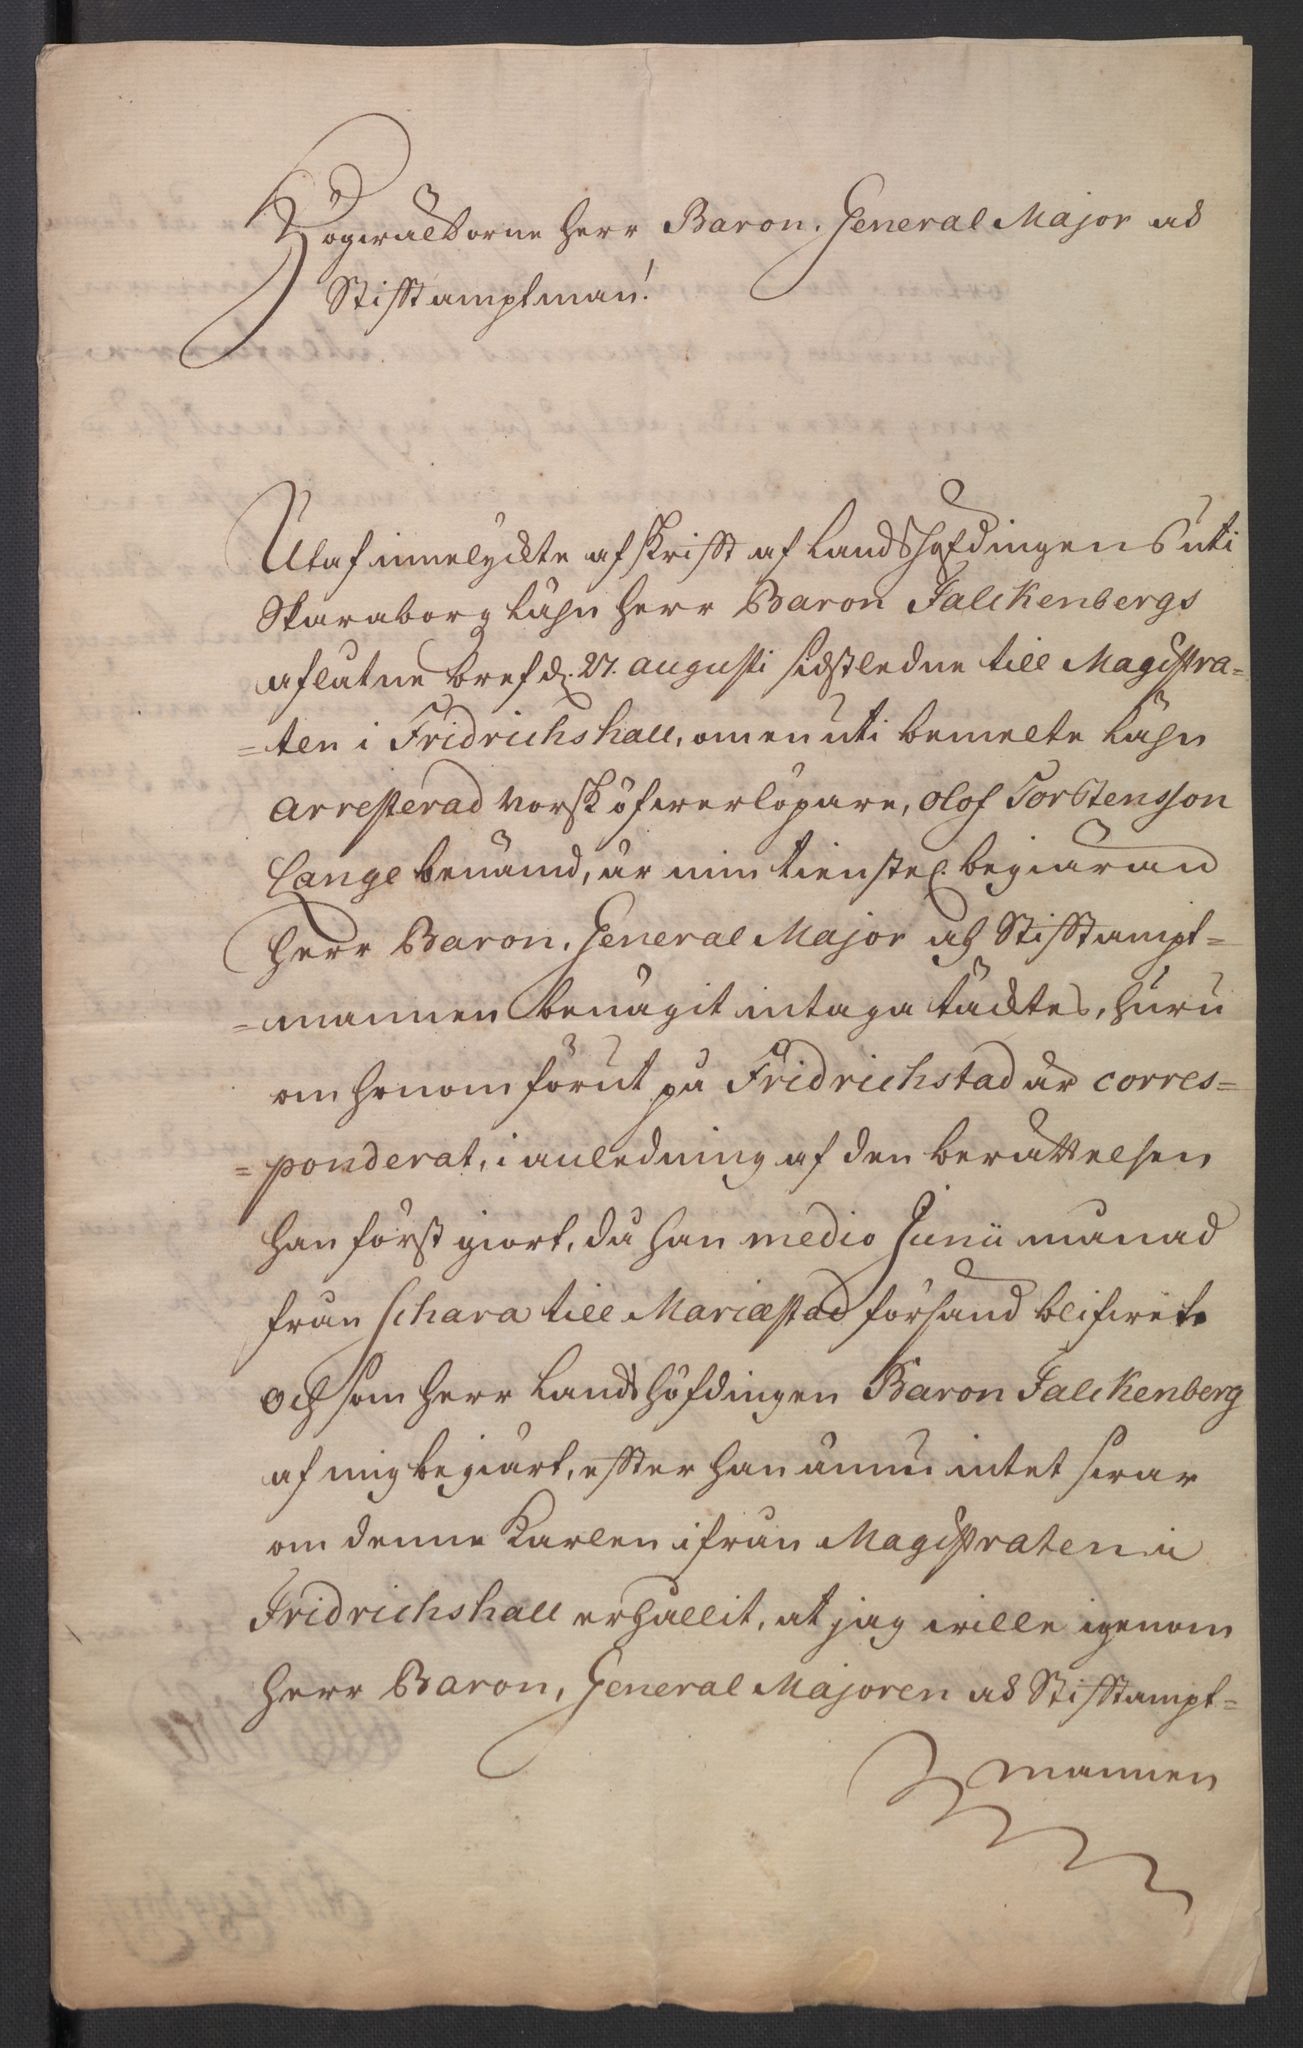 Högwälborne Herr Baron, General Major och
Stifftamptman!
Utaf innelyckte afskrifft af LandsHöfdingens uti
Skaraborg Lähn Herr Baron Falckenbergs
aflatne bref d. 27. augusti sidstledne till Magistra=
=ten i Fridrichshall, om en uti bemelte Lähn
arresterad Norsk öfwerlöpare, Olof Torstensson
Lange benämd, är min tienstel. begiäran
Herr Baron, General Major och Stifftampt=
=mannen benägit intaga täcktes, huru
om honom förut på Fridrichstad är corres=
=ponderat, i anledning af den berättelsen
han först giort, då han medio Junii månad
från Schara till Mariæstad försänd blifwit.
Och som Herr Landshöfdingen Baron Falckenberg
af mig begiärt, effter han ännu intet swar
om denne Karlen ifrån Magistraten i
Fridrichshall erhållit, at jag wille igenom
Herr Baron, General Majoren och Stifftampt=
mannen